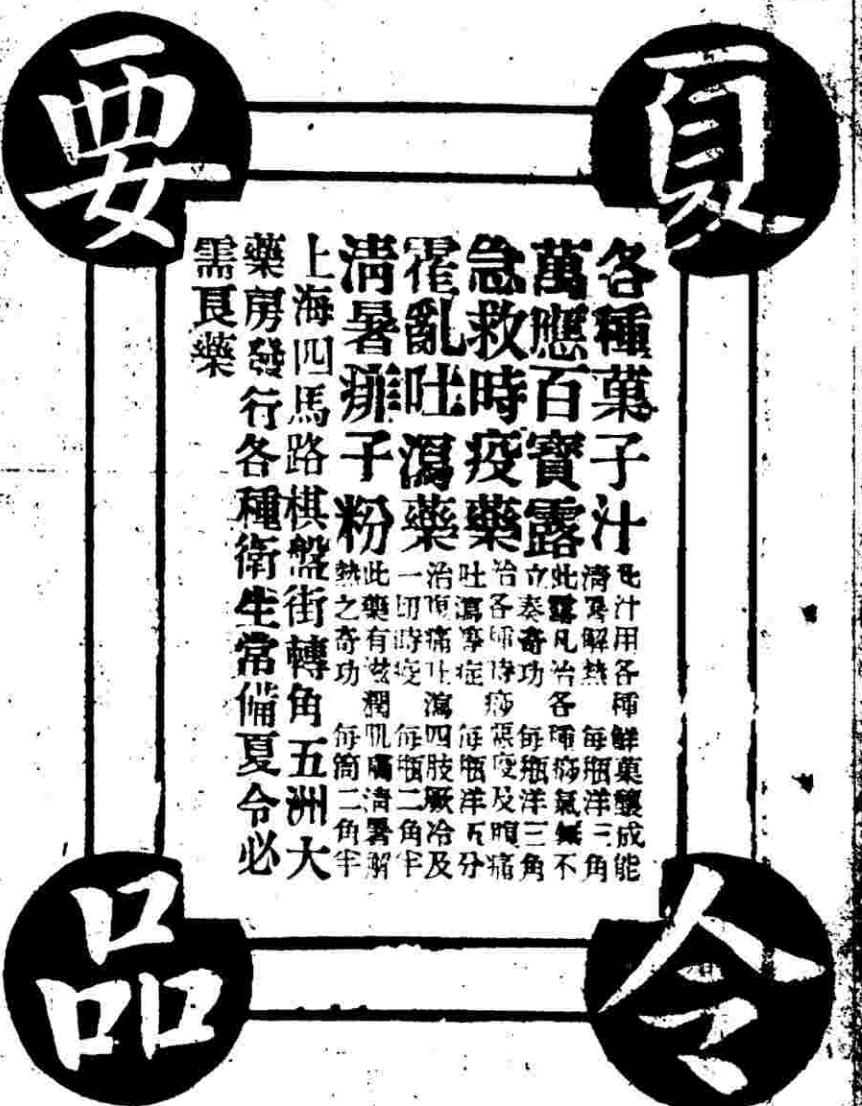 夏
令
要
品
各種菓子汁
此汁用各種鮮菓釀成能
清暑解熱 每瓶洋三角
萬應百寶露
此露凡治各種痧氣無不
立奏奇功 每瓶洋三角
急救時疫藥
治各種時痧惡疫及腹痛
吐瀉等症 每瓶洋五分
霍亂吐瀉藥
治腹痛吐瀉四肢厥冷及
一切時疫 每瓶二角半
清暑痱子粉
此藥有滋潤肌膚清暑解
熱之奇功 每筒二角半
上海四馬路棋盤街轉角五洲大
藥房發行各種衛生常備夏令必
需良藥